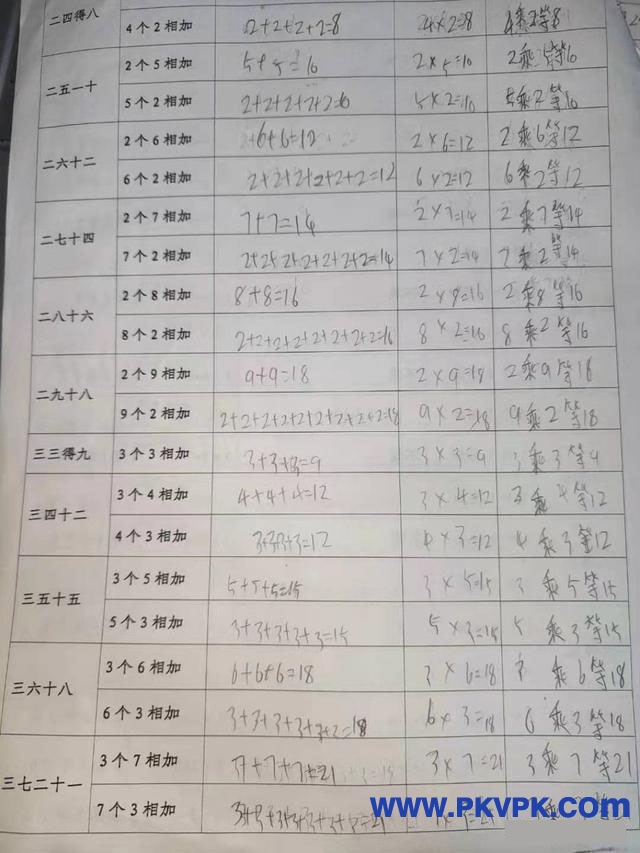 二四得八 4个2相加 2+2+2+2=8 4×2=8 4乘2等8
二五一十 2个5相加 5+5=10 2×5=10 2乘5等10
5个2相加 2+2+2+2+2=10 5×2=10 5乘2等10
二六十二 2个6相加 6+6=12 2×6=12 2乘6等12
6个2相加 2+2+2+2+2+2=12 6×2=12 6乘2等12
二七十四 2个7相加 7+7=14 2×7=14 2乘7等14
7个2相加 2+2+2+2+2+2+2=14 7×2=14 7乘2等14
二八十六 2个8相加 8+8=16 2×8=16 2乘8等16
8个2相加 2+2+2+2+2+2+2+2=16 8×2=16 8乘2等16
二九十八 2个9相加 9+9=18 2×9=18 2乘9等18
9个2相加 2+2+2+2+2+2+2+2+2=18 9×2=18 9乘2等18
三三得九 3个3相加 3+3+3=9 3×3=9 3乘3等9
三四十二 3个4相加 4+4+4=12 3×4=12 3乘4等12
4个3相加 3+3+3+3=12 4×3=12 4乘3等12
三五十五 3个5相加 5+5+5=15 3×5=15 3乘5等15
5个3相加 3+3+3+3+3=15 5×3=15 5乘3等15
三六十八 3个6相加 6+6+6=18 3×6=18 3乘6等18
6个3相加 3+3+3+3+3+3=18 6×3=18 6乘3等18
三七二十一 3个7相加 7+7+7=21 3×7=21 3乘7等21
7个3相加 3+3+3+3+3+3+3=21
www.PKVPK.com